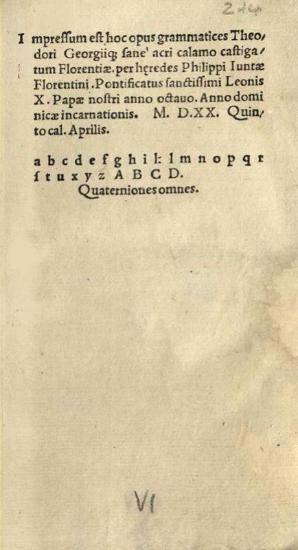 Impressum est hoc opus grammatices Theo⸗
dori Georgiiq; sane' acri calamo castiga⸗
tum Florentiæ. per hęredes Philippi Iuntæ
Florentini. Pontificatus sanctissimi Leonis
X. Papæ nostri anno octauo. Anno domi
nicæ incarnationis. M. D.XX. Quin⸗
to cal. Aprilis.
a b c d e f g h i k l m n o p q r
ſ t u x y z A B C D.
Quaterniones omnes.
VI